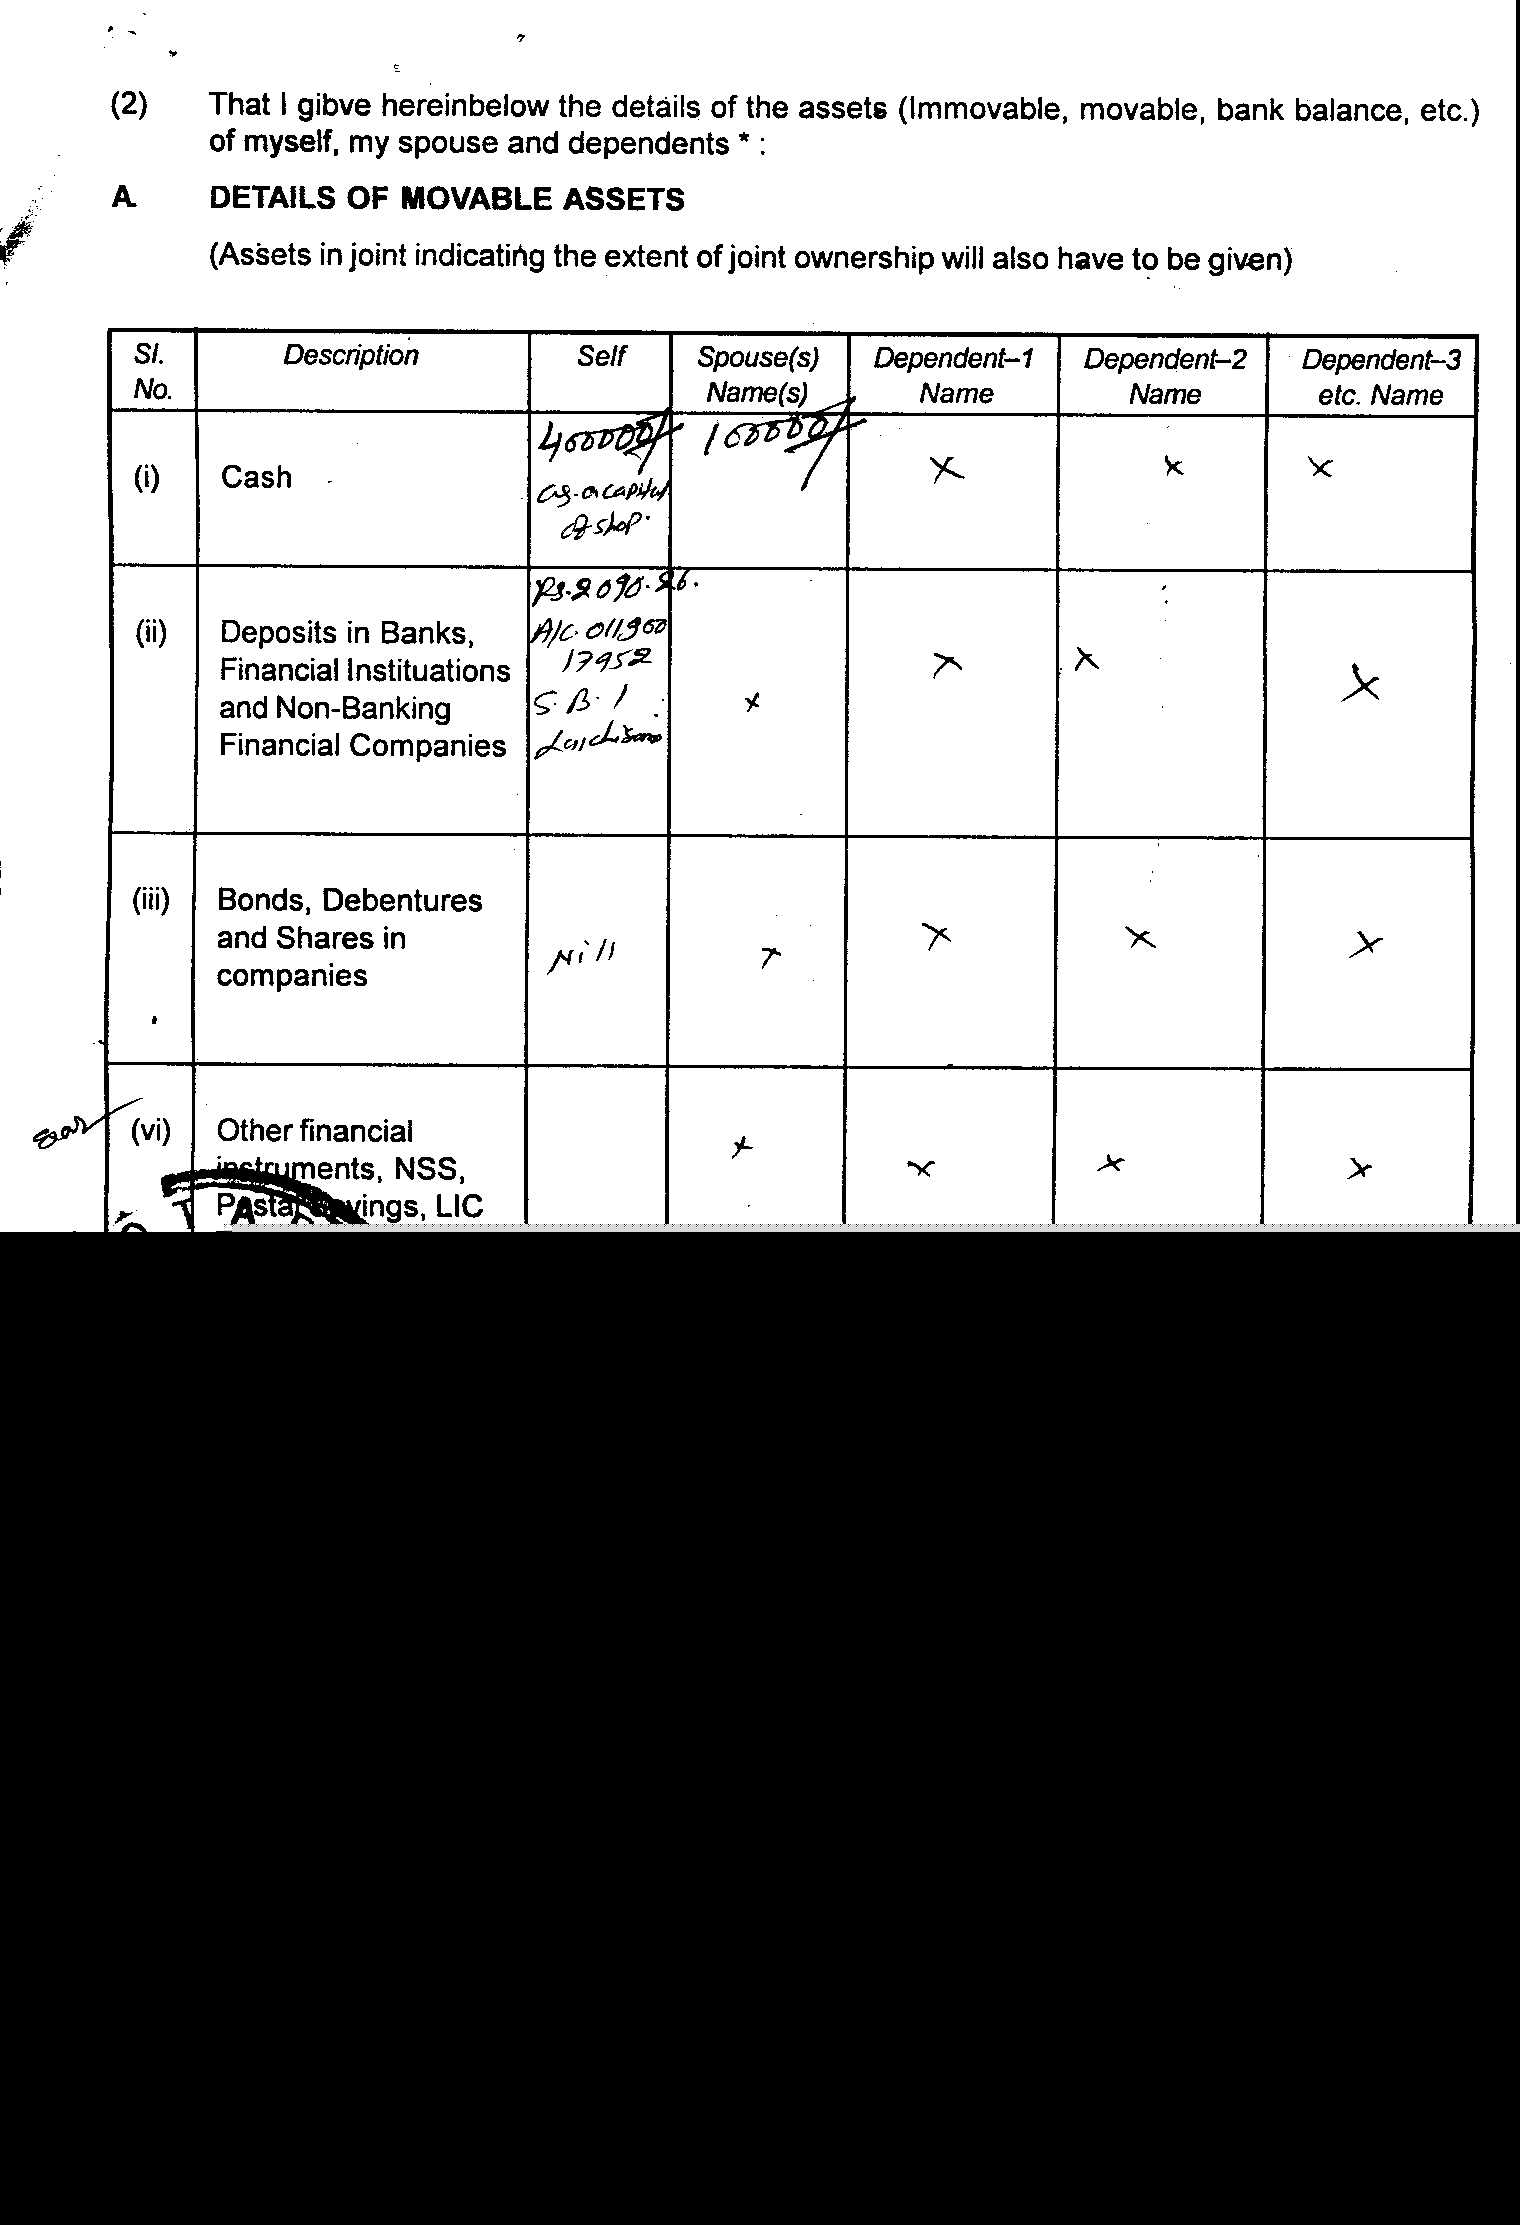 (2) That I gibve hereinbelow the details of the assets (Immovable, movable, bank balance, etc.)
of myself, my spouse and dependents * :
A. DETAILS OF MOVABLE ASSETS
(Assets in joint indicating the extent of joint ownership will also have to be given)
Sl. No. Description Self Spouse(s) Name(s) Dependent–1 Name Dependent–2 Name Dependent–3 etc. Name
400000/ 100000/
(i) Cash x x x
as a capital
of shop.
Rs. 2090.26.
(ii) Deposits in Banks, A/C. 011900
Financial Instituations 17952 x x
and Non-Banking S.B.I x x
Financial Companies
(iii) Bonds, Debentures
and Shares in Nill x x x x
companies
(vi) Other financial x
instruments, NSS, x x x
Postal Savings, LIC